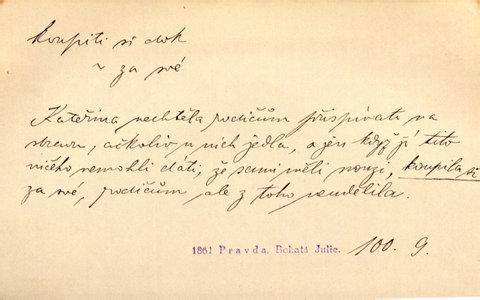 koupiti si co k
~ za své
Kateřina nechtěla rodičům přispívati na
stravu, ačkoliv u nich jedla, a jen když jí tito
ničeho nemohli dáti, že sami měli nouzi, koupila si
za své, rodičům ale z toho neudělila.
1861 Pravda. Bohatá Julie. 100. 9.